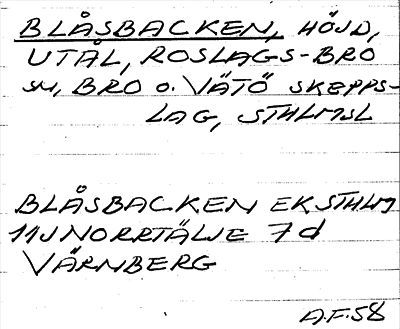 BLÅSBACKEN, HÖJD,
UTÅL, ROSLAGS-BRO
SN, BRO O. VÄTÖ SKEPPS-
LAG, STHLMSL
BLÅSBACKEN EKSTHLM
11J NORRTÄLJE 7d
VÄRNBERG
A.F. 58